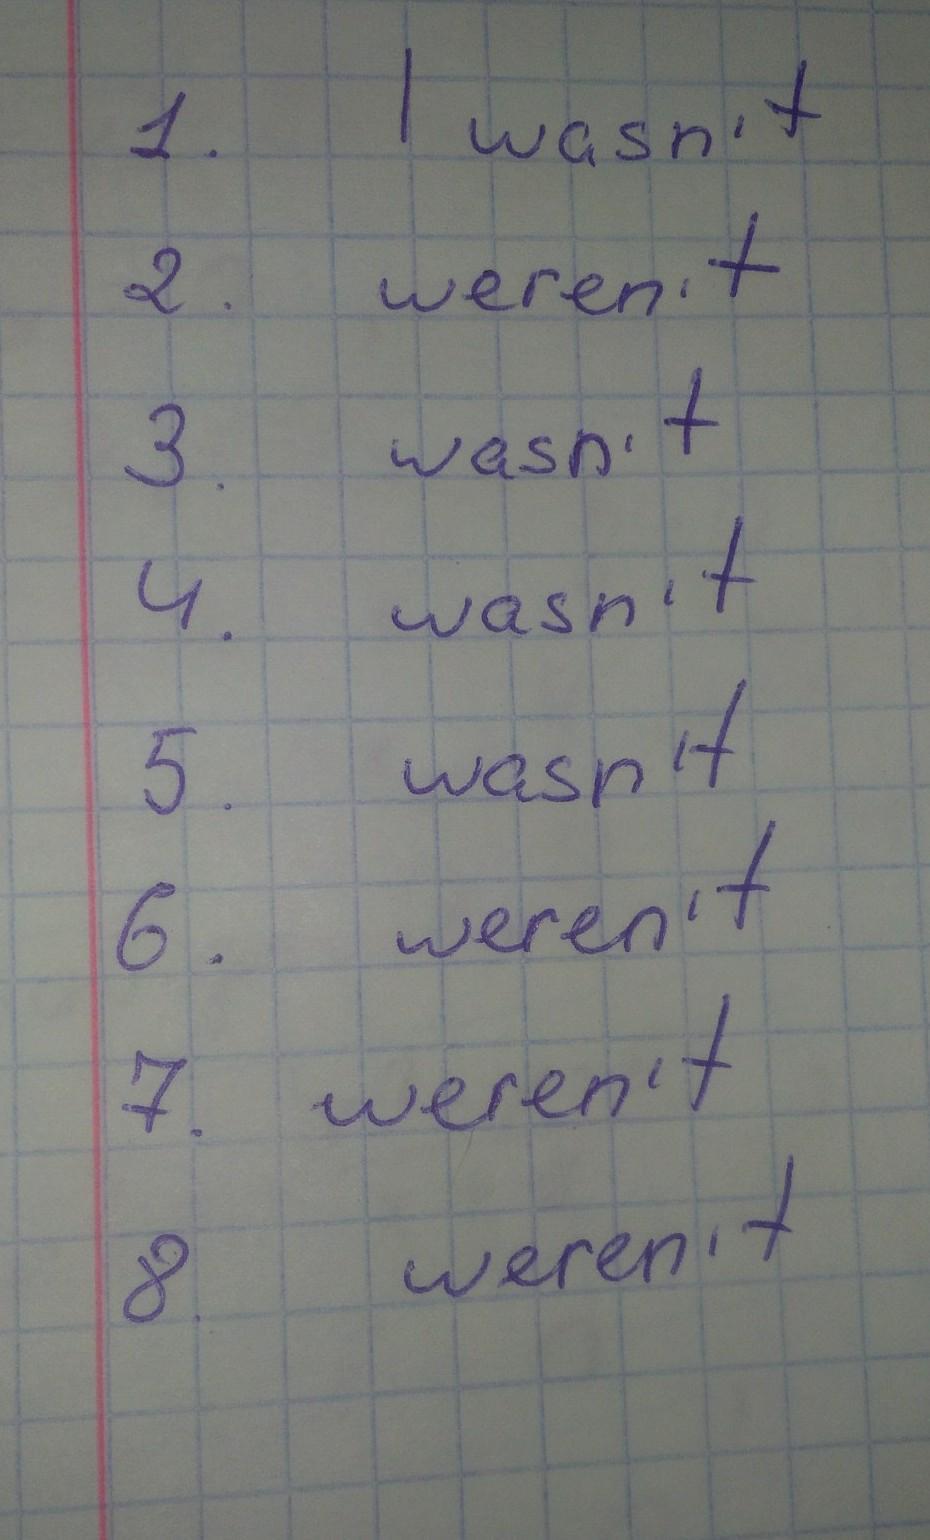 1. I wasn't
2. weren't
3. wasn't
4. wasn't
5. wasn't
6. weren't
7. weren't
8. weren't